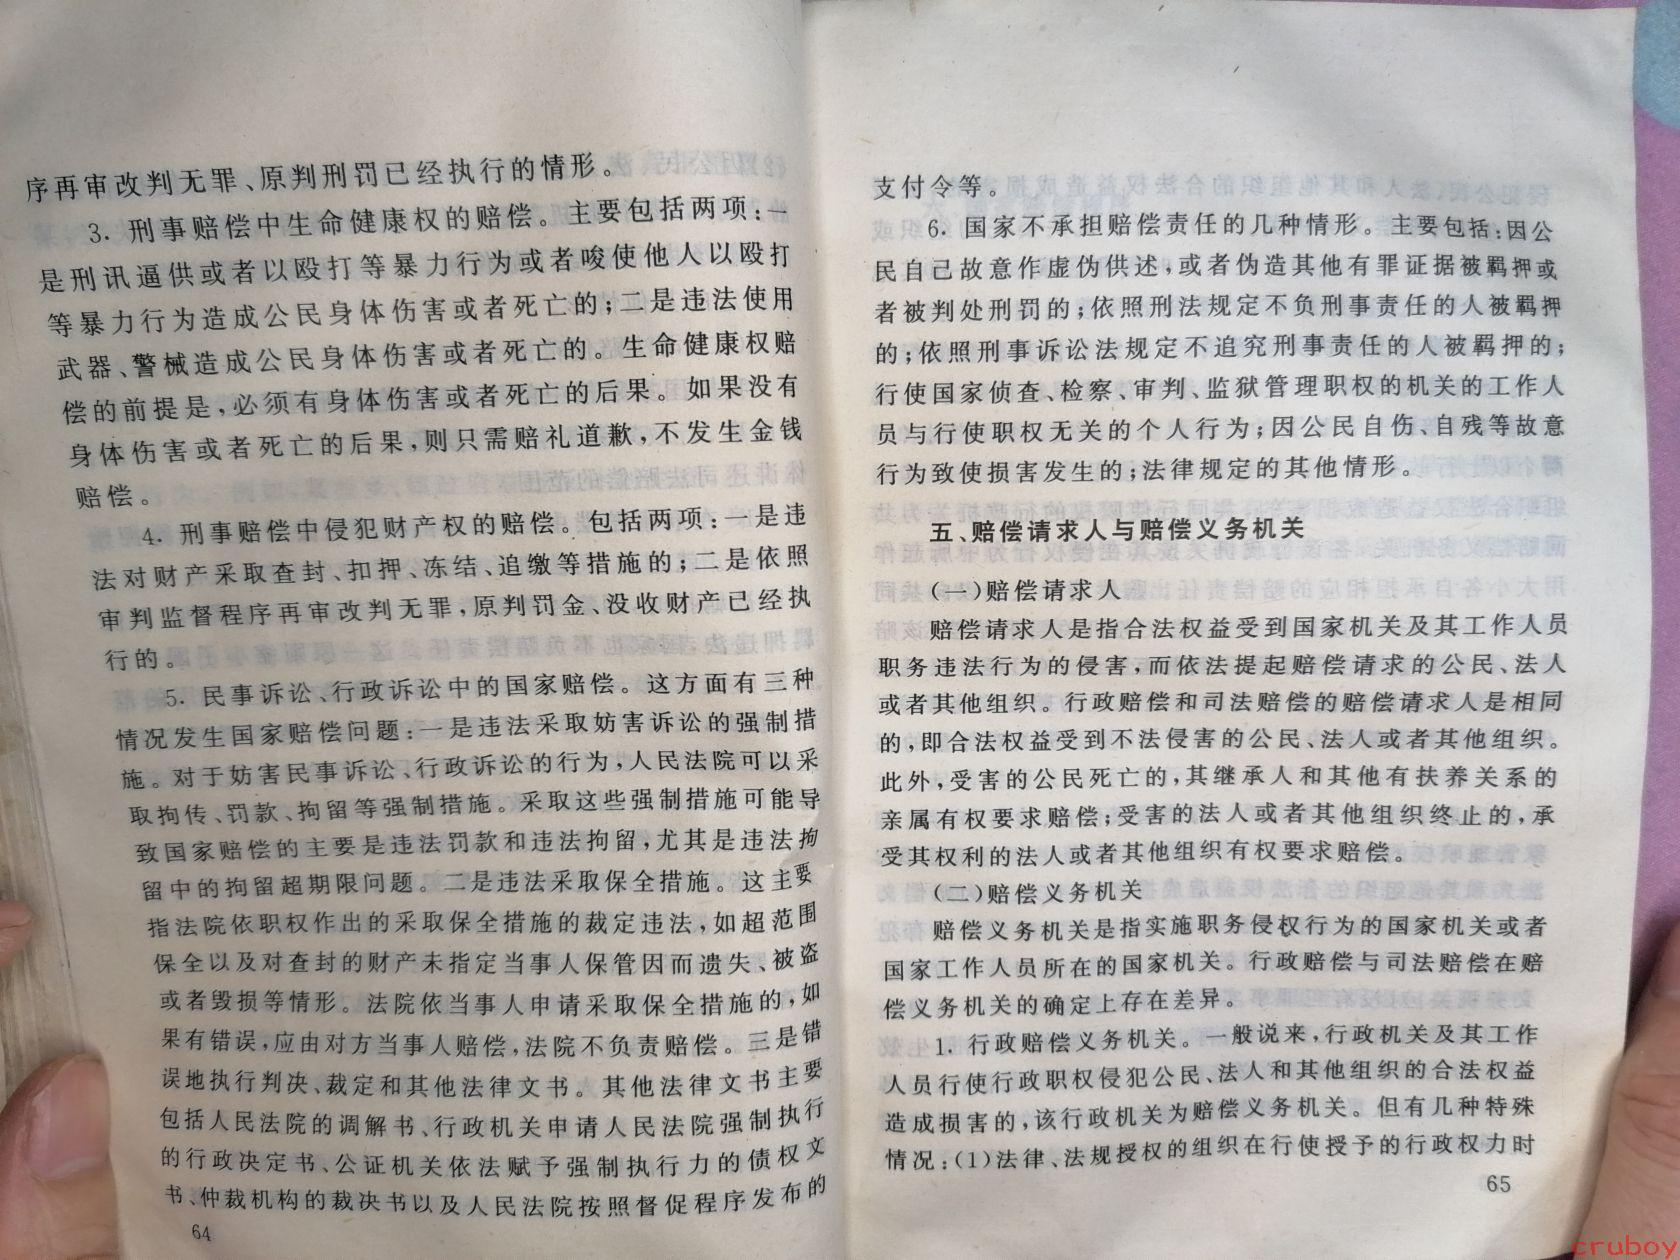 序再审改判无罪、原判刑罚已经执行的情形。
3. 刑事赔偿中生命健康权的赔偿。主要包括两项：一
是刑讯逼供或者以殴打等暴力行为或者唆使他人以殴打
等暴力行为造成公民身体伤害或者死亡的；二是违法使用
武器、警械造成公民身体伤害或者死亡的。生命健康权赔
偿的前提是，必须有身体伤害或者死亡的后果。如果没有
身体伤害或者死亡的后果，则只需赔礼道歉，不发生金钱
赔偿。
4. 刑事赔偿中侵犯财产权的赔偿。包括两项：一是违
法对财产采取查封、扣押、冻结、追缴等措施的；二是依照
审判监督程序再审改判无罪，原判罚金、没收财产已经执
行的。
5. 民事诉讼、行政诉讼中的国家赔偿。这方面有三种
情况发生国家赔偿问题：一是违法采取妨害诉讼的强制措
施。对于妨害民事诉讼、行政诉讼的行为，人民法院可以采
取拘传、罚款、拘留等强制措施。采取这些强制措施可能导
致国家赔偿的主要是违法罚款和违法拘留，尤其是违法拘
留中的拘留超期限问题。二是违法采取保全措施。这主要
指法院依职权作出的采取保全措施的裁定违法，如超范围
保全以及对查封的财产未指定当事人保管因而遗失、被盗
或者毁损等情形。法院依当事人申请采取保全措施的，如
果有错误，应由对方当事人赔偿，法院不负责赔偿。三是错
误地执行判决、裁定和其他法律文书。其他法律文书主要
包括人民法院的调解书、行政机关申请人民法院强制执行
的行政决定书、公证机关依法赋予强制执行力的债权文
书、仲裁机构的裁决书以及人民法院按照督促程序发布的
64
支付令等。
6. 国家不承担赔偿责任的几种情形。主要包括：因公
民自己故意作虚伪供述，或者伪造其他有罪证据被羁押或
者被判处刑罚的；依照刑法规定不负刑事责任的人被羁押
的；依照刑事诉讼法规定不追究刑事责任的人被羁押的；
行使国家侦查、检察、审判、监狱管理职权的机关的工作人
员与行使职权无关的个人行为；因公民自伤、自残等故意
行为致使损害发生的；法律规定的其他情形。
五、赔偿请求人与赔偿义务机关
（一）赔偿请求人
赔偿请求人是指合法权益受到国家机关及其工作人员
职务违法行为的侵害，而依法提起赔偿请求的公民、法人
或者其他组织。行政赔偿和司法赔偿的赔偿请求人是相同
的，即合法权益受到不法侵害的公民、法人或者其他组织。
此外，受害的公民死亡的，其继承人和其他有扶养关系的
亲属有权要求赔偿；受害的法人或者其他组织终止的，承
受其权利的法人或者其他组织有权要求赔偿。
（二）赔偿义务机关
赔偿义务机关是指实施职务侵权行为的国家机关或者
国家工作人员所在的国家机关。行政赔偿与司法赔偿在赔
偿义务机关的确定上存在差异。
1. 行政赔偿义务机关。一般说来，行政机关及其工作
人员行使行政职权侵犯公民、法人和其他组织的合法权益
造成损害的，该行政机关为赔偿义务机关。但有几种特殊
情况：(1)法律、法规授权的组织在行使授予的行政权力时
65
cruboy